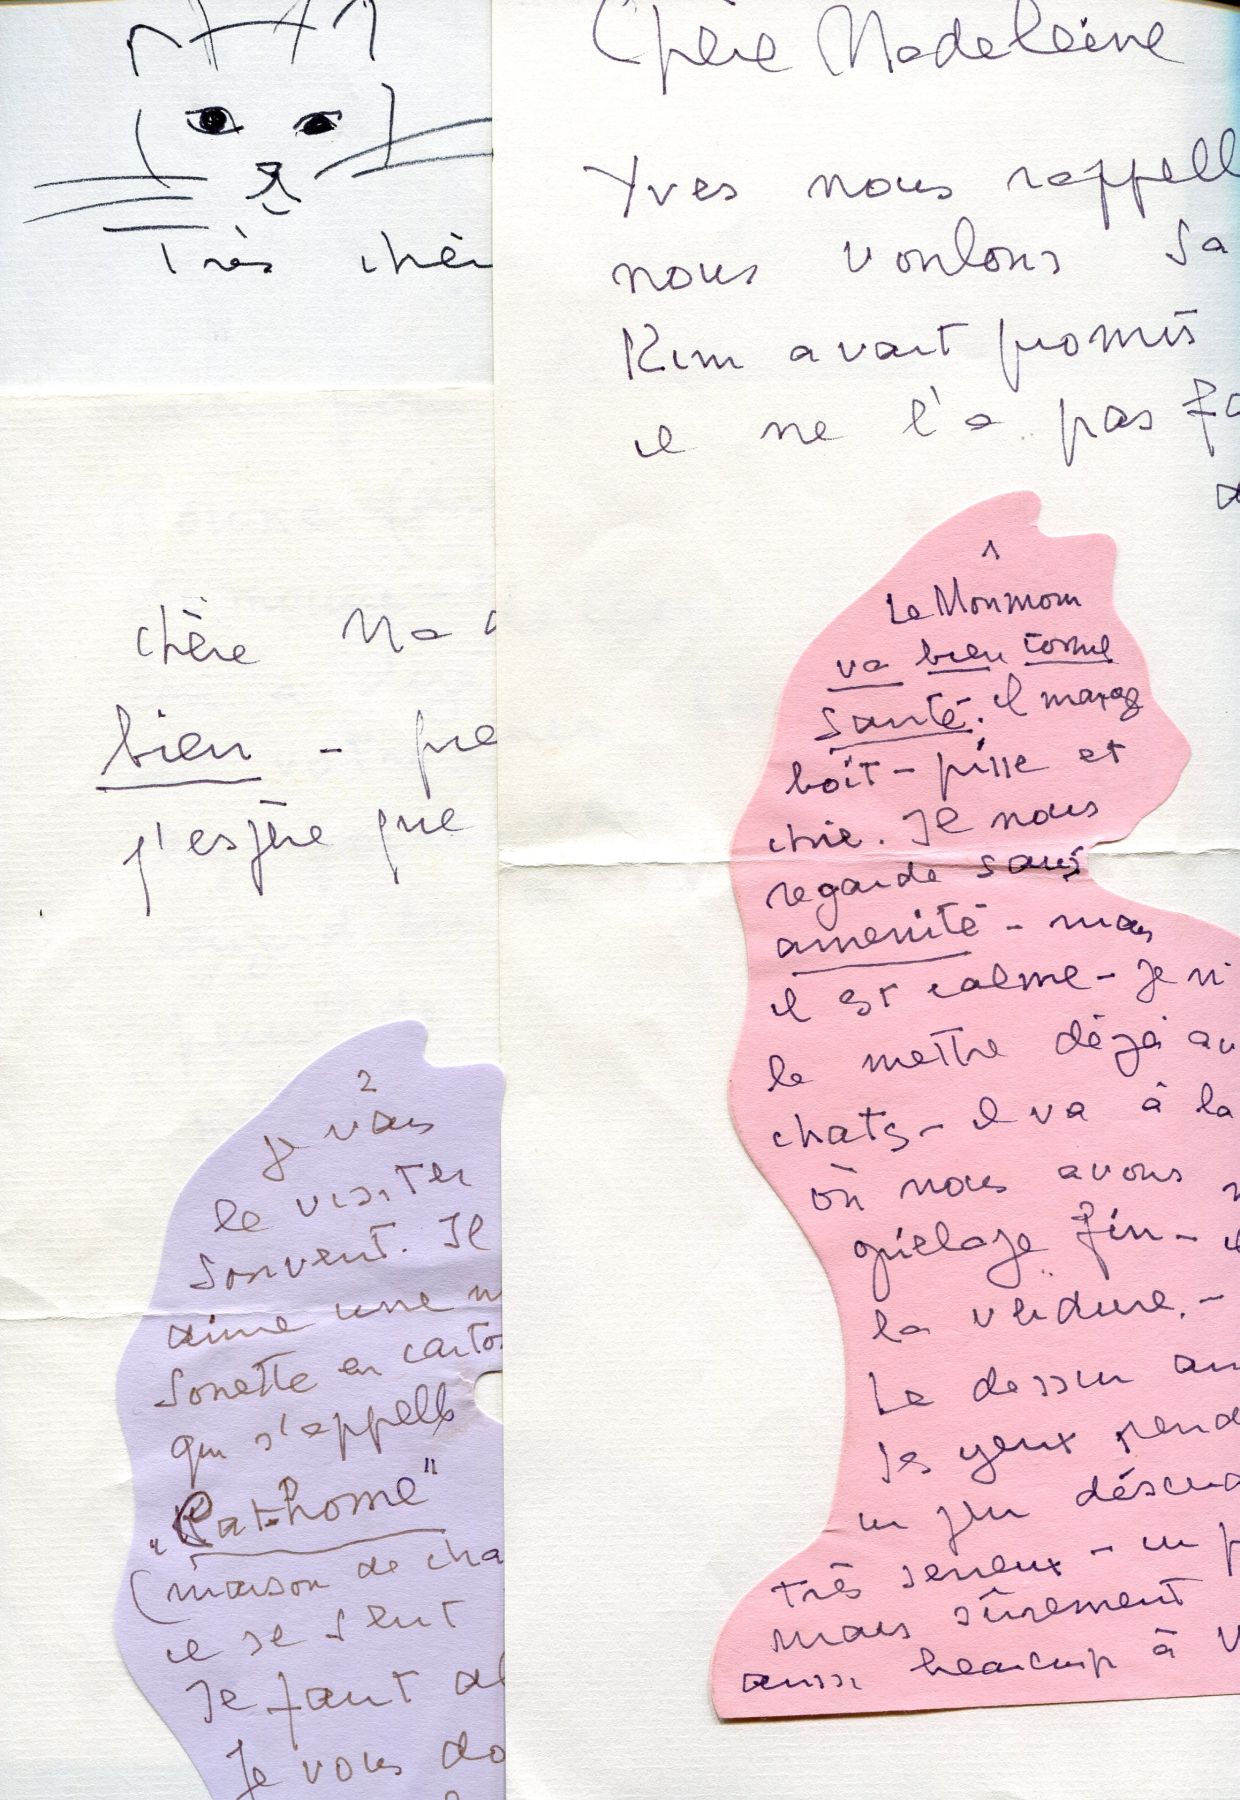 Très chèr
chère Mad
bien - pre
j'espère que
2
je vais
le visiter
souvent. Il
aime une m
sonette en carto
qui s'appelle
"Cat-home"
(maison de cha
il se sent
Je vous do
Chère Madeleine
Yves nous rappell
nous voulons sa
Kim avait promis
il ne l'a pas fa
1
Le Monmom
va bien
santé. il
boit - pisse et
chie. Je nous
regarde sans
amenité - mais
il est calme - Je n'
le mettre déjà au
chats - il va à la
où nous avons
grielage fin - il
la verdure. -
Le dessin
Ses yeux rend
un peu déscu
très serieux - un p
mais sûrement
aussi beaucoup à V